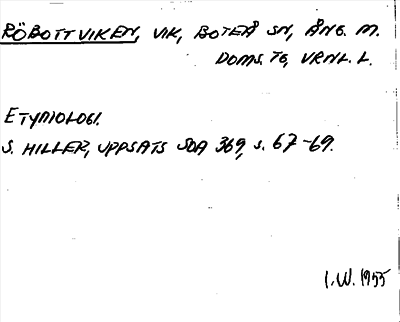 RÖBOTTVIKEN, VIK, BOTEÅ SN, ÅNG. M.
DOMS. TG, VRNL. L.
ETYMOLOGI.
S. HILLER, UPPSATS SOA 369, s. 67-69.
I.W. 1955